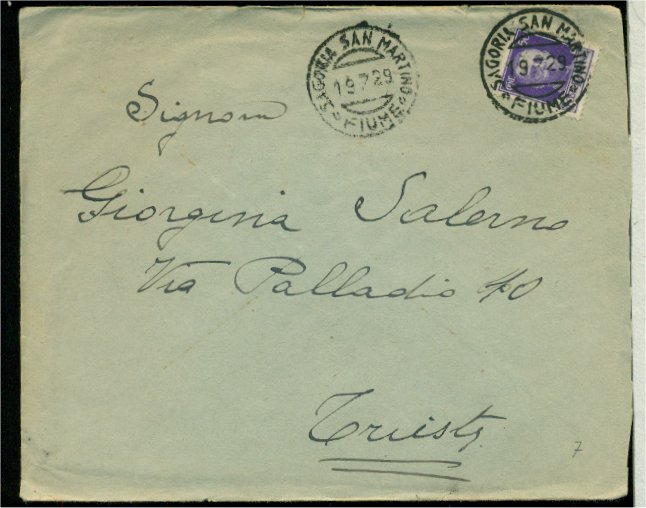 SAGORIA SAN MARTINO
19.7.29
* FIUME *
SAGORIA SAN MARTINO
19.7.29
* FIUME *
Signora
Giorgina Salerno
Via Palladio 40
Trieste
7